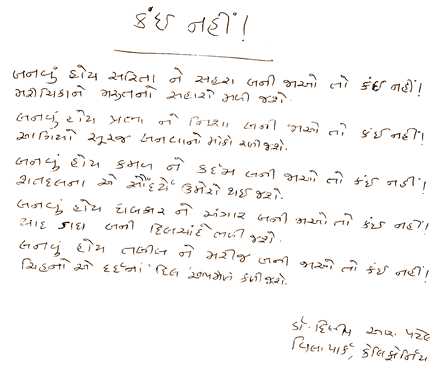 કંઈ નહીં!
બનવું હોય સરિતા ને સહરા બની જાઓ તો કંઈ નહીં!
મરીચિકાને મૃગનો સહારો મળી જશે.
બનવું હોય પ્રભા ને નિશા બની જાઓ તો કંઈ નહીં!
સૂરજ બનવાનો મોકો મળી જશે.
બનવું હોય કમળ ને કર્દમ બની જાઓ તો કંઈ નહીં!
શતદલના એ સૌંદર્યે ઉમેરો થઈ જશે.
બનવું હોય ને અંગાર બની જાઓ તો કંઈ નહીં!
યાદ બની જશે.
બનવું હોય તબીબ ને મરીજ બની જાઓ તો કંઈ નહીં!
એ દર્દમાં દિલ જશે.
ડૉ. દિલીપ આર. પટેલ
કેલિફોર્નિયા